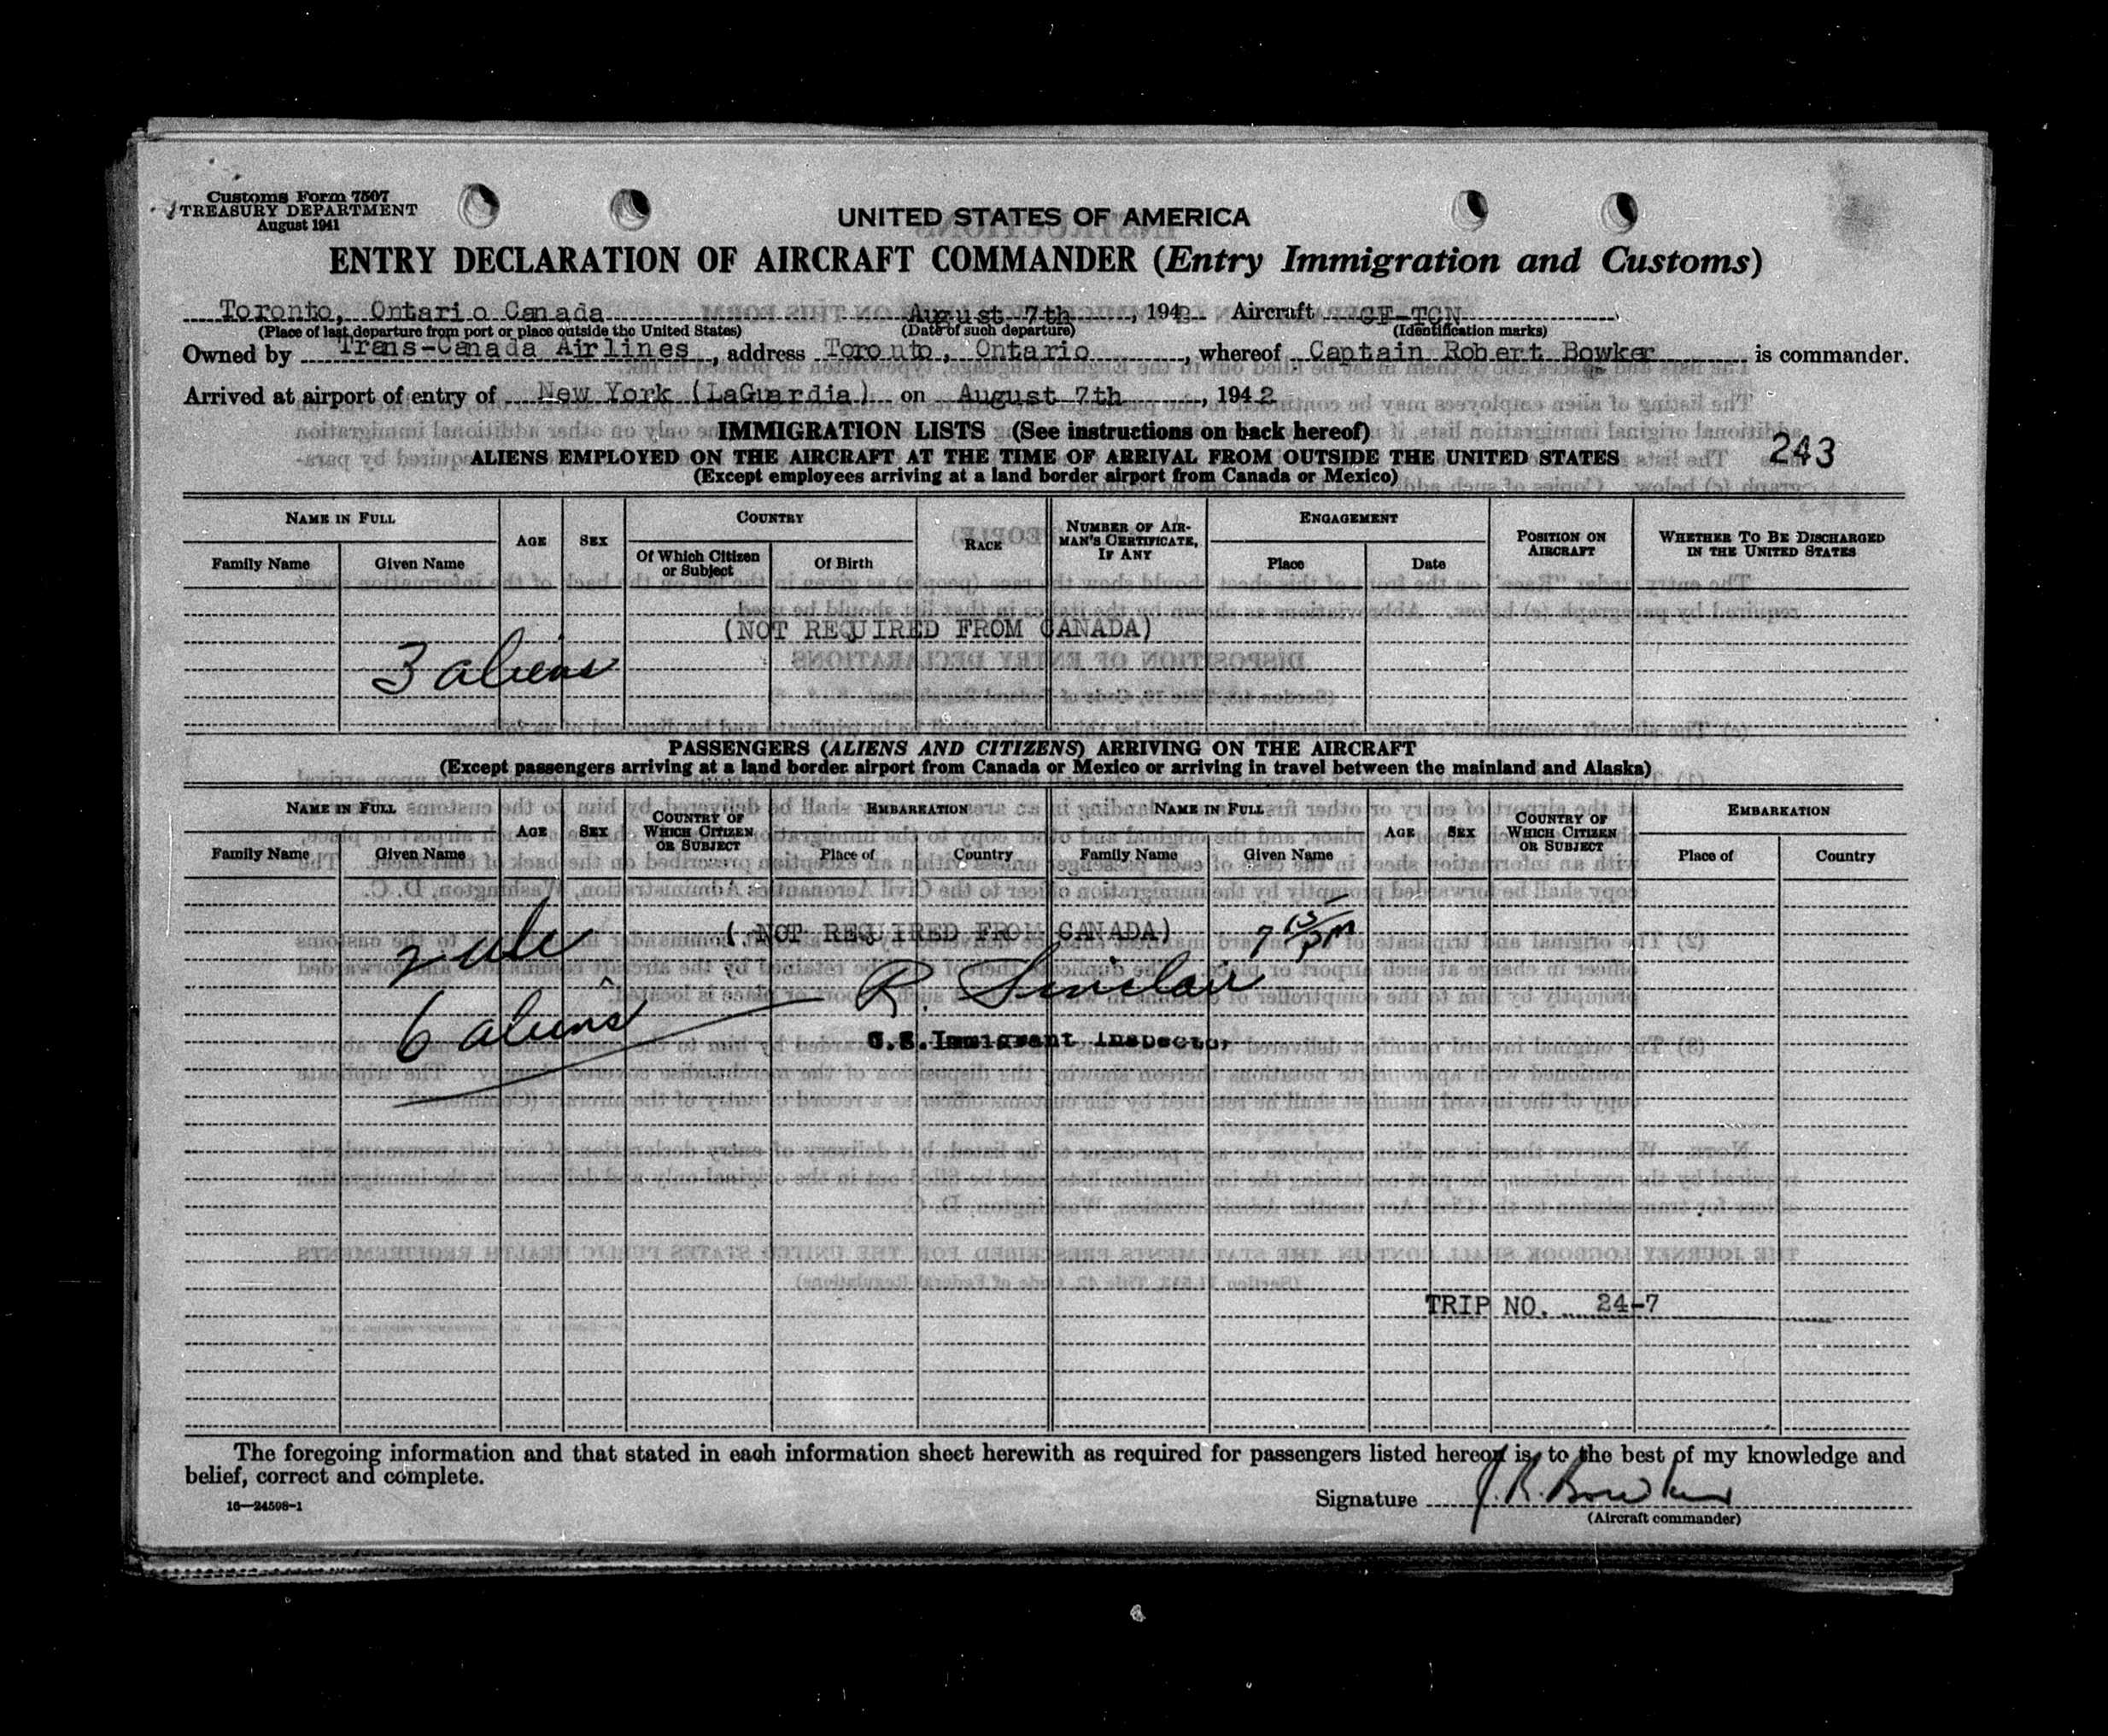 Customs Form 7507
TREASURY DEPARTMENT
August 1941
UNITED STATES OF AMERICA
ENTRY DECLARATION OF AIRCRAFT COMMANDER (Entry Immigration and Customs)
Toronto, Ontario Canada August 7th, 1942 Aircraft CF-TCN
(Place of last departure from port or place outside the United States) (Date of such departure) (Identification marks)
Owned by Trans-Canada Airlines, address Toronto, Ontario, whereof Captain Robert Bowker is commander.
Arrived at airport of entry of New York (LaGuardia) on August 7th, 1942
IMMIGRATION LISTS (See instructions on back hereof)
243
ALIENS EMPLOYED ON THE AIRCRAFT AT THE TIME OF ARRIVAL FROM OUTSIDE THE UNITED STATES
(Except employees arriving at a land border airport from Canada or Mexico)
NAME IN FULL AGE SEX COUNTRY RACE NUMBER OF AIRMAN'S CERTIFICATE, IF ANY ENGAGEMENT POSITION ON AIRCRAFT WHETHER TO BE DISCHARGED IN THE UNITED STATES
Family Name Given Name Of Which Citizen or Subject Of Birth Place Date
(NOT REQUIRED FROM CANADA)
3 aliens
PASSENGERS (ALIENS AND CITIZENS) ARRIVING ON THE AIRCRAFT
(Except passengers arriving at a land border airport from Canada or Mexico or arriving in travel between the mainland and Alaska)
NAME IN FULL AGE SEX COUNTRY OF WHICH CITIZEN OR SUBJECT EMBARKATION NAME IN FULL AGE SEX COUNTRY OF WHICH CITIZEN OR SUBJECT EMBARKATION
Family Name Given Name Place of Country Family Name Given Name Place of Country
(NOT REQUIRED FROM CANADA) 7 15/PM
R. Sinclair
6 aliens
U.S. Immigrant Inspector
TRIP NO. 24-7
The foregoing information and that stated in each information sheet herewith as required for passengers listed hereon is, to the best of my knowledge and
belief, correct and complete.
16—24598-1
Signature J. R. Bowker
(Aircraft commander)